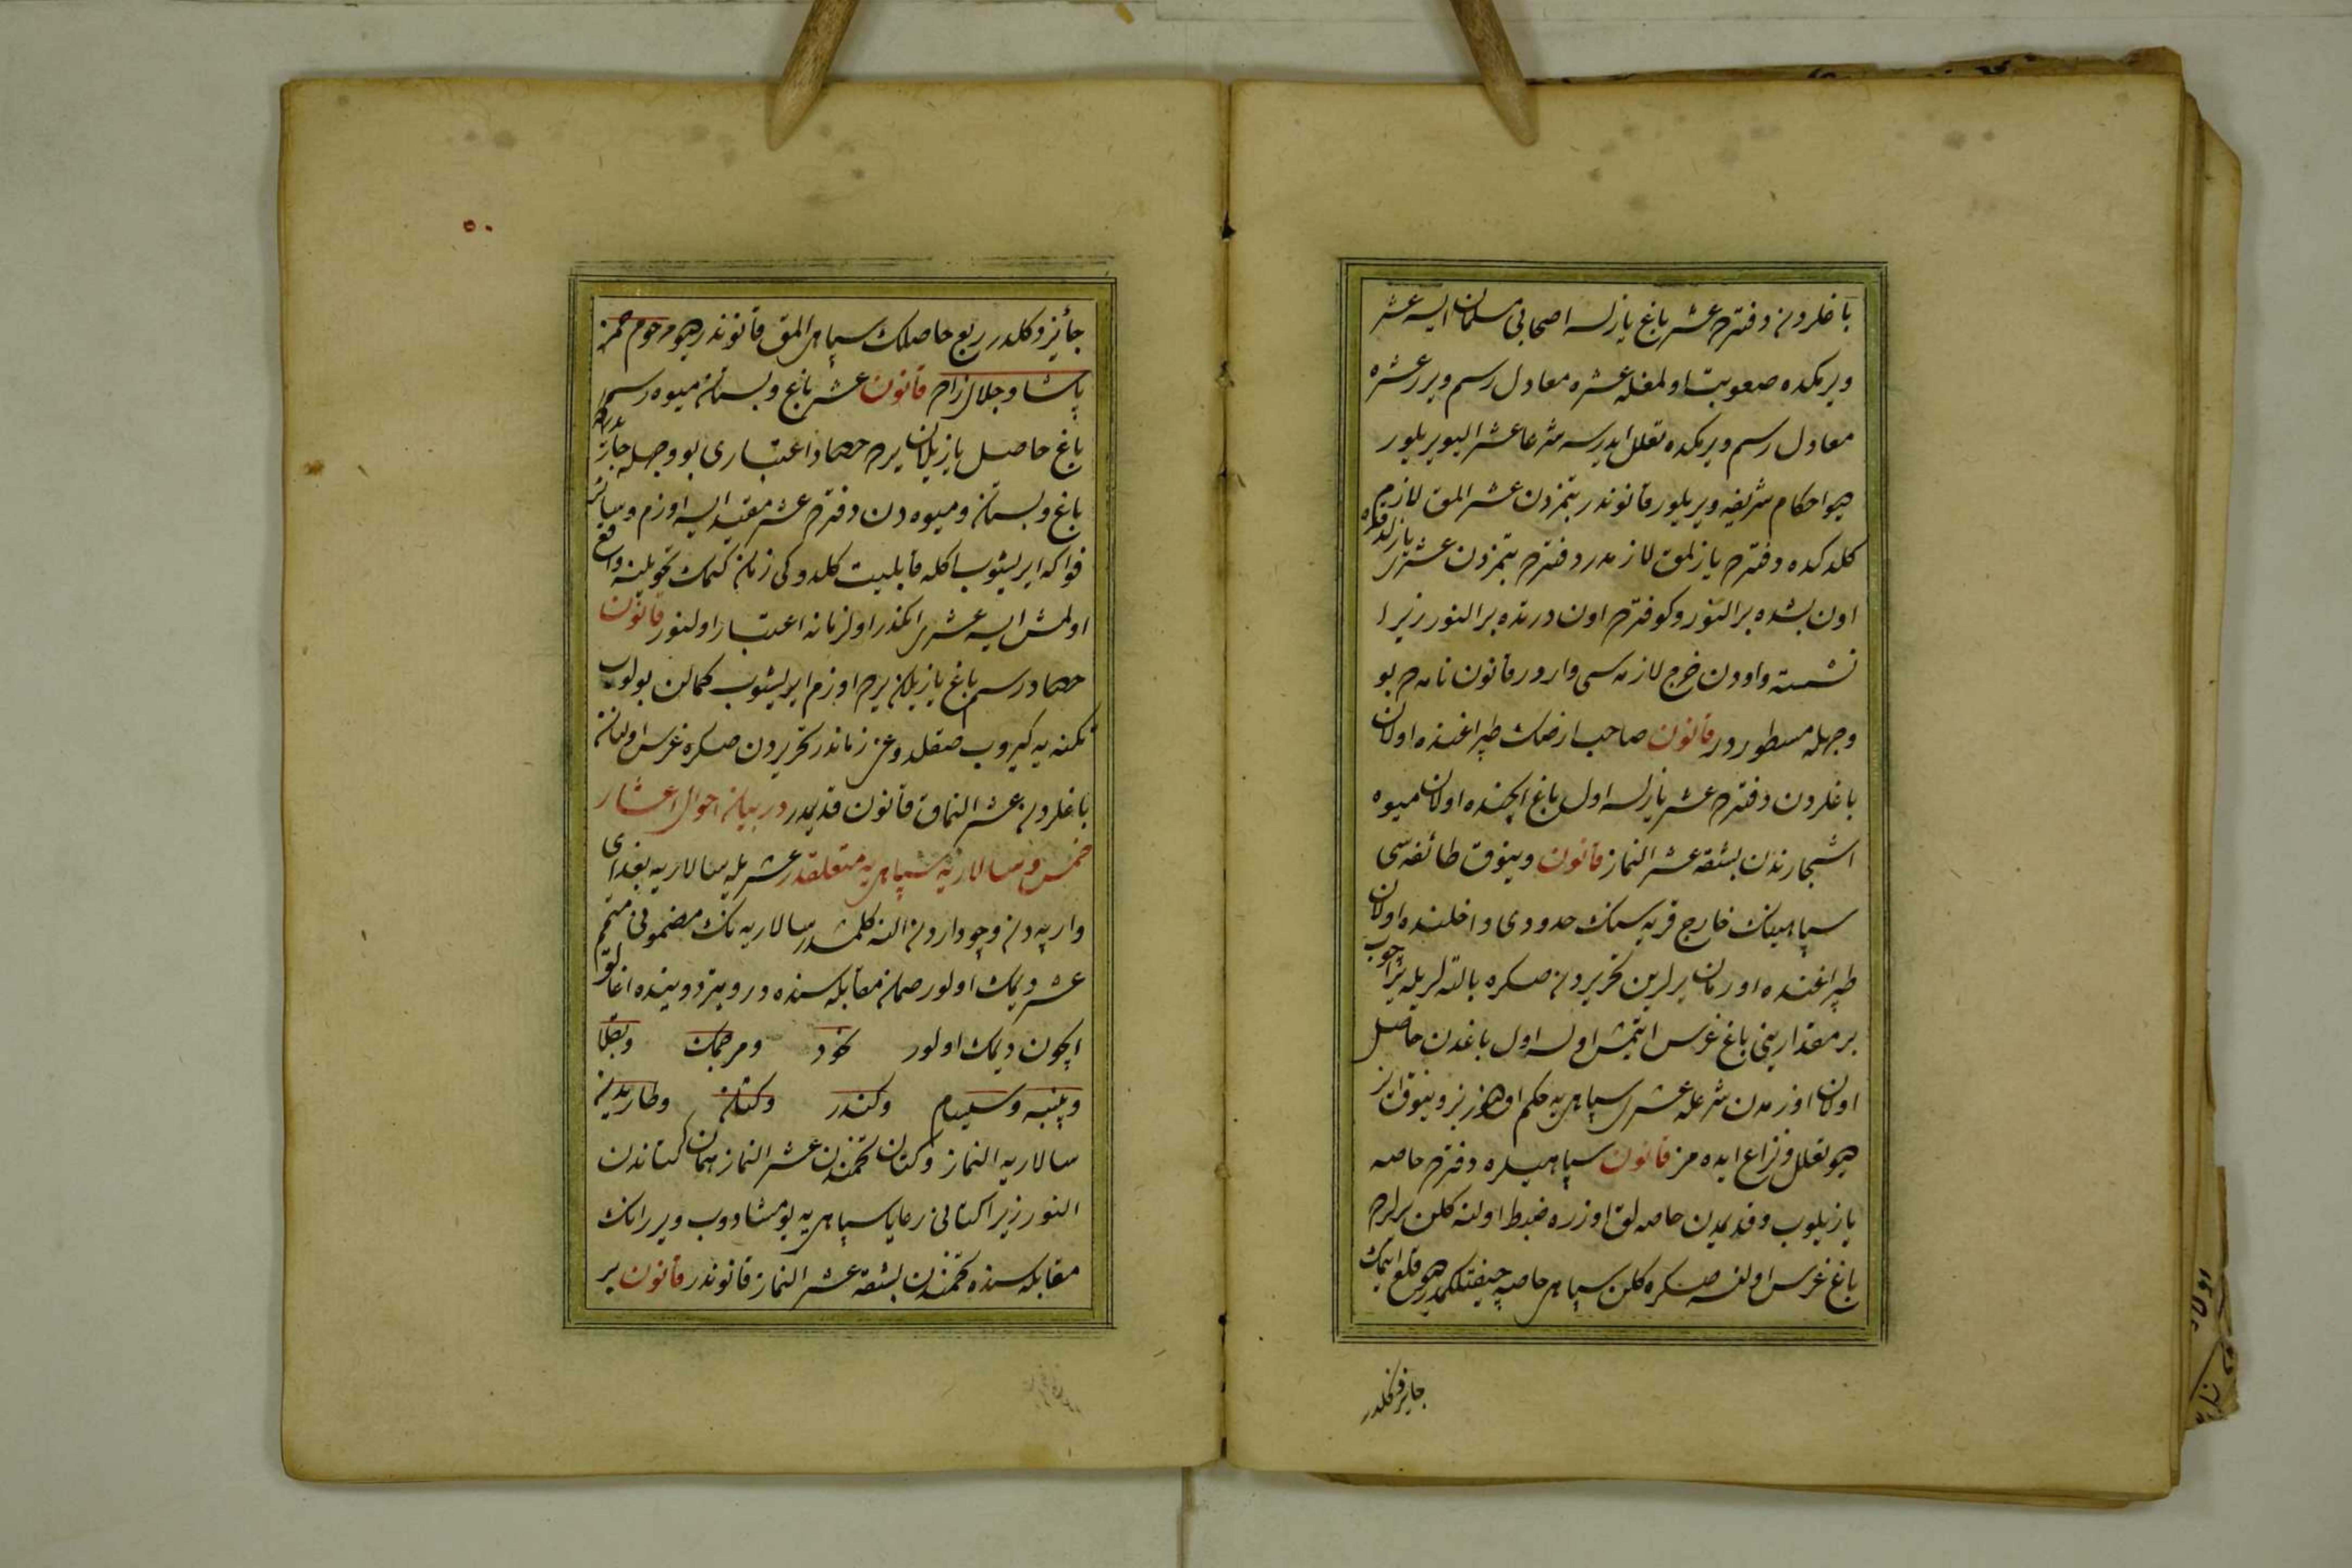 باغلردن دفترده عشر باغ يازلسه اصحابى مسلمان ايسه عشر
ويرمكده صعوبت اولمغله عشره معادل رسم ويرر عشره
معادل رسم ويرمكده تعلل ايدرسه شرعا عشر اليويريلور
ديو احكام شريفه ويريلور قانوندر بتمزدن عشر المق لازم
كلدكده دفترده يازلمق لازمدر دفترده بتمزدن عشرى يازلدقده
اون بشده بر النور و كوفترده اون درتده بر النور زيرا
نشسته و اودن خرج لازمه سى واردر قانون نامه ده بو
وجهله مسطوردر قانون صاحب ارضك طپراغنده اولان
باغلردن دفترده عشر يازلسه اول باغ ايچنده اولان ميوه
اشجارندن بشقه عشر النماز قانون ويوق طائفه سى
سپاهينك خارج قريه سنك حدودى داخلنده اولان
طپراغنده اورمان يرلرين تحريردن صكره بالته لريله اچوب
بر مقدارينى باغ غرس ايتمش اولسه اول باغدن حاصل
اولان اوزمدن شرعله عشرى سپاهى يه حكم اولنور بز ويوق ايز
ديو تعلل و نزاع ايده مز قانون سپاهيلره دفترده خاصه
يازيلوب و قديمدن خاصه لق اوزره ضبط اولنه كلن يرلرده
باغ غرس اولنسه صكره كلن سپاهى خاصه چفتلكمدر ديو قلع ايتمك
جايز دكلدر
٥٠
جائز دكلدر ربع حاصلك سپاهى المق قانوندر ديو مرحوم حمزه
پاشا و جلال زاده قانون عشر باغ و بستان ميوه و رسم
باغ حاصل يازيلان يرده حصاد اعتبارى بو وجهله جاريدر كه
باغ و بستان و ميوه دن دفترده عشر مقيد ايسه اوزم و سائر
فواكه ايريشوب اكله قابليت كلدوكى زمان كيمك تحويلنه واقع
اولمش ايسه عشرى انكدر اول زمانه اعتبار اولنور قانون
حصاد رسم باغ يازيلان يرده اوزم ايريشوب كمالن بولوب
تكنه يه كيروب صقلدوغى زماندر تحريردن صكره غرس اولنان
باغلردن عشر النماق قانون قديمدر در بيان احوال اعشار
خمس و سالاريه سپاهى يه متعلقدر عشريله سالاريه بغداى
و ارپه دن و چوداردن النه كلمشدر سالاريه نك مضمونى متمم
عشر ديمك اولور صمان مقابله سنده در و يتردوينده اغالق
ايچون ديمك اولور نخود و مرجمك و بقلا
و پنبه و سيسام و كندر و كتان و طاريدن
سالاريه النماز و كتان تخمندن عشر النماز همان كتاندن
النور زيرا كتانى رعايا سپاهى يه يومشادوب ويرر انك
مقابله سنده تخمندن بشقه عشر النماز قانوندر قانون بر